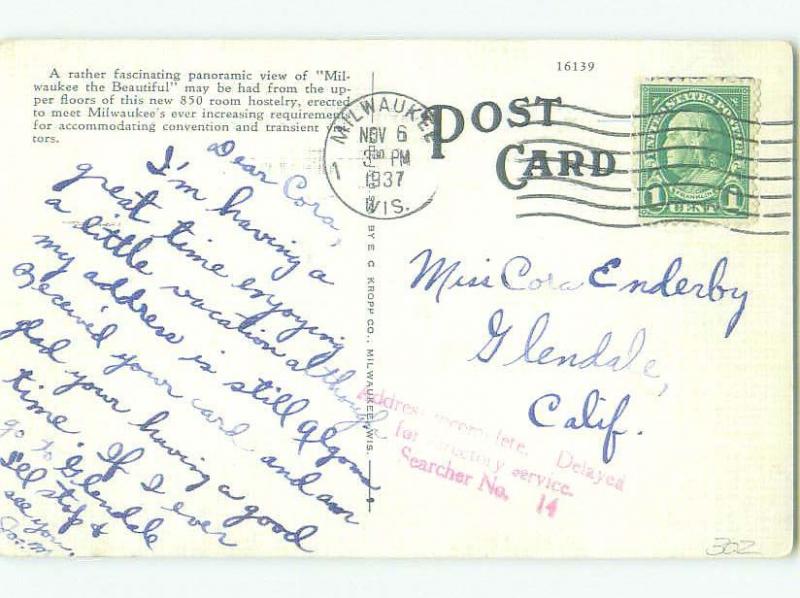 A rather fascinating panoramic view of "Mil-
waukee the Beautiful" may be had from the up-
per floors of this new 850 room hostelry, erected
to meet Milwaukee's ever increasing requirement
for accommodating convention and transient
tors.
16139
POST
CARD
MILWAUKEE
NOV 6
3 PM
1937
WIS.
1
UNITED STATES POSTAGE
FRANKLIN
1 CENT 1
BY E. C. KROPP CO., MILWAUKEE, WIS.
Dear Cora,
I'm having a
great time enjoying
a little vacation although
my address is still Algoma.
Received your card and am
glad your having a good
time. If I ever
go to Glendale
I'll stop &
see you.
Miss Cora Enderby
Glendale,
Calif.
Address incomplete. Delayed
for directory service.
Searcher No. 14
302